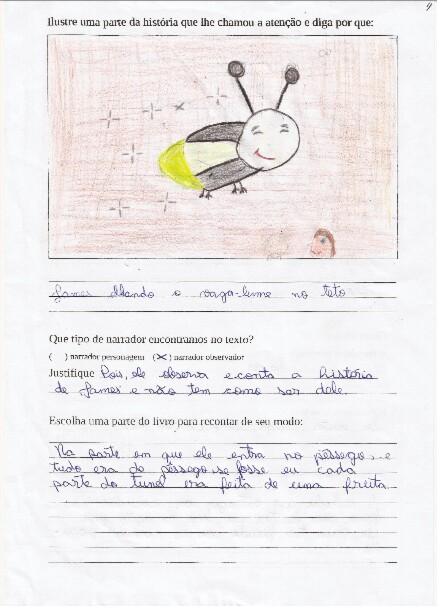 4
Ilustre uma parte da história que lhe chamou a atenção e diga por que:
James olhando o vaga-lume no teto
Que tipo de narrador encontramos no texto?
( ) narrador personagem (X) narrador observador
Justifique Pois, ele observa e conta a história
de James e não tem como ser dele.
Escolha uma parte do livro para recontar de seu modo:
Na parte em que ele entra no pêssego, e
tudo era de pêssego, se fosse eu cada
parte do tunel era feita de uma fruta.